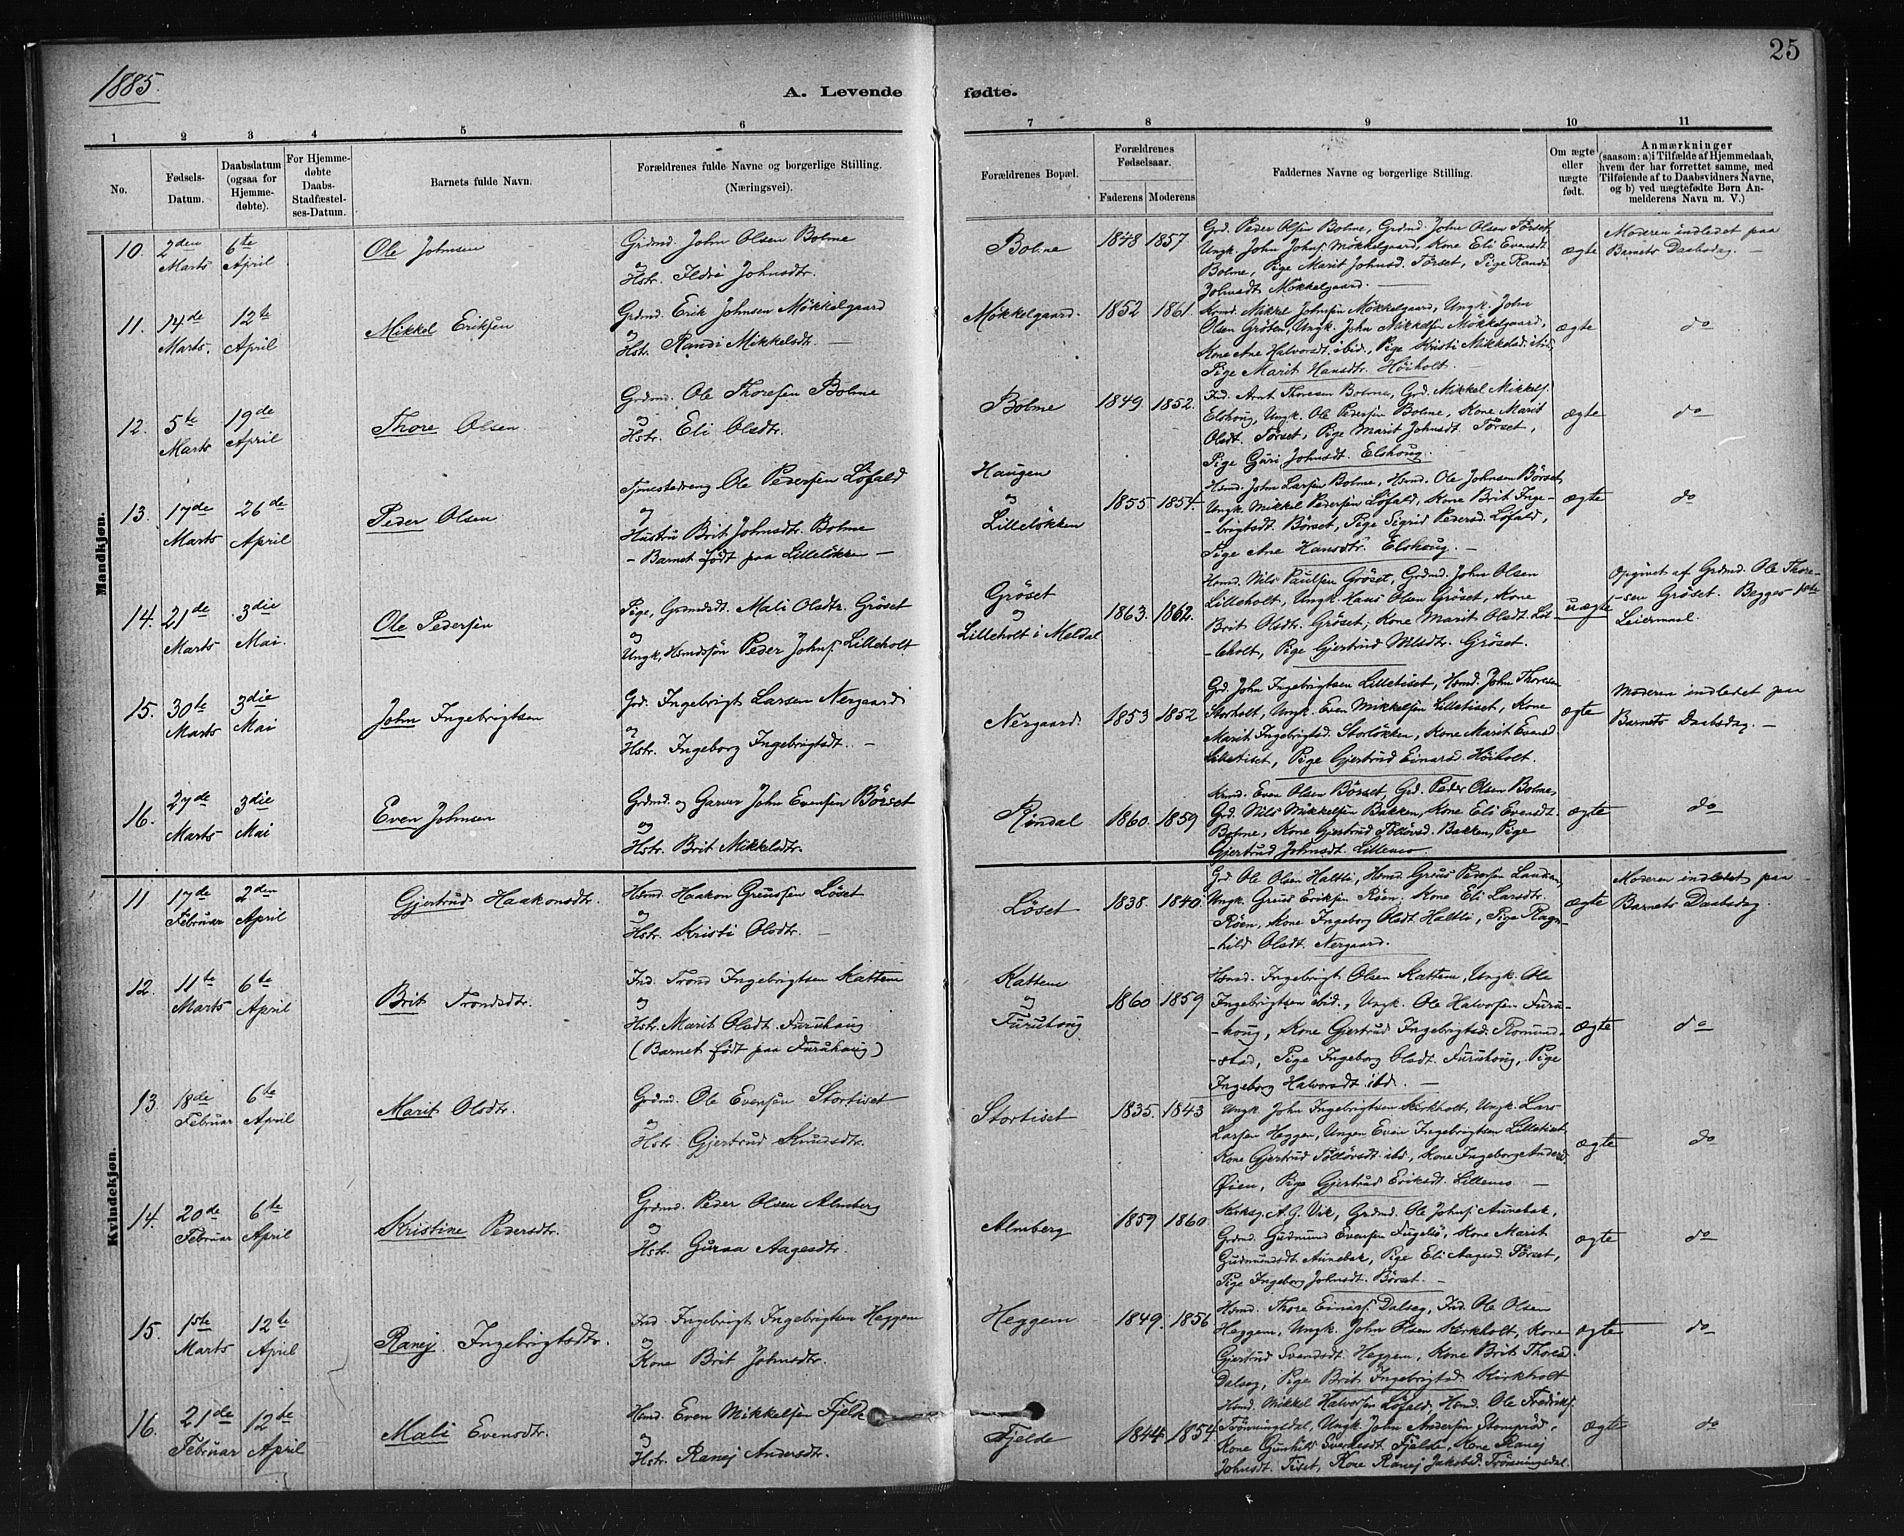 1885.
A. Levende fødte.
25
1 2 3 4 5 6 7 8 9 10 11
No.
Fødsels-Datum.
Daabsdatum (ogsaa for Hjemmedøbte).
For Hjemmedøbte Daabs-Stadfæstelses-Datum.
Barnets fulde Navn.
Forældrenes fulde Navne og borgerlige Stilling.
(Næringsvei).
Forældrenes Bopæl.
Forældrenes Fødselsaar.
Faderens Moderens
Faddernes Navne og borgerlige Stilling.
Om ægte eller uægte født.
Anmærkninger
(saasom: a) i Tilfælde af Hjemmedaab, hvem der har forrettet samme, med Tilføiende af to Daabsvidners Navne, og b) ved uægtefødte Børn Anmelderens Navn m. V.)
Mandkjøn.
10. 2den Marts 6te April Ole Johnsen
Grdmd. John Olsen Bolme
og
Hstr. Ildri Johnsdtr.
Bolme 1848 1857
Grd. Peder Olsen Bolme, Grdmd. John Olsen Torset,
Ungk. John Johns. Møkkelgaard, Kone Eli Evensdt.
Bolme, Pige Marit Johnsd. Torset, Pige Randi
Johnsdt. Møkkelgaard. —
ægte
Moderen indledet paa
Barnets Daabsdag. —
11. 14de Marts. 12te April Mikkel Eriksen
Grdmd. Erik Johnsen Møkkelgaard
og
Hstr. Randi Mikkelsdt. —
Møkkelgaard. 1852 1861.
Kmd. Mikkel Johnsen Møkkelgaard, Ungk. John
Olsen Grøten, Ungk. John Mikkelsen Møkkelgaard,
Kone Ane Halvorsdt. ibid., Pige Kristi Mikkelsd. ibid.
Pige Marit Hansdtr. Høiholt. —
ægte
do
12. 5te Marts 19de April Thore Olsen
Grdmd. Ole Thoresen Bolme
og
Hstr. Eli Olsdtr.
Bolme 1849 1852.
Ind. Arnt Thoresen Bolme, Grd. Mikkel Mikkels.
Elshoug, Ungk. Ole Pedersen Bolme, Kone Marit
Olsdt. Torset, Pige Marit Johnsdt. Torset,
Pige Guri Johnsdt. Elshoug.
ægte
do
13. 17de Marts 26de April Peder Olsen
Tjenestedreng Ole Pedersen Løfald
og
Hustru Brit Johnsdtr. Bolme
– Barnet født paa Lilleløkken –
Haugen
og
Lilleløkken
1855. 1854.
Hsmd. John Larsen Bolme, Hsmd. Ole Johnsen Børset,
Ungk. Mikkel Pedersen Løfald, Kone Brit Inge-
-brigtsdt. Børset, Pige Sigrid Pedersd. Løfald,
Pige Ane Hansdtr. Elshoug. —
ægte
do
14. 21de Marts 3die Mai. Ole Pedersen
Pige, Grdmdsdt. Mali Olsdtr. Grøset
og
Ungk., Hsmdssøn Peder Johns. Lilleholt
Grøset
og
Lilleholt i Meldal
1863. 1862.
Hsmd. Nils Paulsen Grøset, Grdmd. John Olsen
Lilleholt, Ungk. Hans Olsen Grøset, Kone
Brit Olsdtr. Grøset, Kone Marit Olsdt. Lil-
-leholt, Pige Gjertrud Nilsdtr. Grøset.
uægte
Opgivet af Grdmd. Ole Thore-
-sen Grøset. Begges 1ste
Leiermaal.
15. 30te Marts 3die Mai John Ingebrigtsen
Grd. Ingebrigt Larsen Nergaard
og
Hstr. Ingeborg Ingebrigtsdt. —
Nergaard. 1853 1852
Grd. John Ingebrigtsen Lilletiset, Hsmd. John Thoresen
Storholt, Ungk. Even Mikkelsen Lilletiset, Kone
Marit Ingebrigtsd. Storløkken, Kone Marit Evensd.
Lilletiset, Pige Gjertrud Einarsd. Høiholt.
ægte
Moderen indledet paa
Barnets Daabsdag. —
16. 27de Marts 3die Mai Even Johnsen
Grdmd. og Garver John Evensen Børset
og
Hstr. Brit Mikkelsdtr.
Rindal 1860. 1859
Kmd. Even Olsen Børset, Grd. Peder Olsen Bolme,
Grd. Nils Mikkelsen Bakken, Kone Eli Evensdt.
Bolme, Kone Gjertrud Tolløvsd. Bakken, Pige
Gjertrud Johnsdt. Lillemo
ægte
do
Kvindekjøn.
11 17de Februar 2den April Gjertrud Haakonsdtr.
Hsmd. Haakon Greussen Løset
og
Hstr. Kristi Olsdtr. —
Løset 1838. 1840.
Grd. Ole Olsen Haltli, Hsmd. Greus Pedersen Landsem,
Ungk. Greus Eriksen Röen, Kone Eli Larsdtr.
Röen, Kone Ingeborg Olsdt. Haltli, Pige Ragn-
-hild Olsdt. Nergaard.
ægte
Moderen indledet paa
Barnets Daabsdag.
12. 11te Marts 6te April Brit Trondsdtr.
Ind. Trond Ingebrigtsen Kattem
og
Hstr. Marit Olsdt. Furuhoug
(Barnet født paa Furuhoug)
Kattem
og
Furuhoug
1860 1859
Hsmd. Ingebrigt Olsen Kattem, Ungk. Ole
Ingebrigtsen ibid., Ungk. Ole Halvorsen Furu-
-houg, Kone Gjertrud Ingebrigtsd. Romund-
-stad, Pige Ingeborg Olsdt. Furuhoug, Pige
Ingeborg Halvorsdt. ibd. —
ægte
do
13. 18de Februar 6te April Marit Olsdtr.
Grdmd. Ole Evensen Stortiset
og
Hstr. Gjertrud Knudsdtr.
Stortiset 1835. 1843
Ungk. John Ingebrigtsen Kirkholt, Ungk. Lars
Larsen Heggem, Ungen Even Ingebrigtsen Lilletiset
Kone Gjertrud Tolløvsdt. ibd, Kone Ingeborg Andersd.
Øien, Pige Gjertrud Eriksdt. Lillemo —
ægte
do
14. 20de Februar 6te April Kristine Pedersdtr.
Grdmd. Peder Olsen Almberg
og
Hstr. Guraa Aagesdtr.
Almberg 1859 1860.
Kirksg. A. G. Vik, Grdmd. Ole Johns. Aunebak,
Grdmd. Gudmund Evensen Fugelsø, Kone Marit
Gudmundsdt. Aunebak, Pige Eli Aagesd. Torset,
Pige Ingeborg Johnsdt. Børset. —
ægte
do
15. 1ste Marts 12te April Ranej Ingebrigtsdtr.
Ind Ingebrigt Ingebrigtsen Heggem
og
Kone Brit Johnsdtr.
Heggem 1849. 1856
Hsmd. Thore Einars. Dalseg, Ind. Ole Olsen
Heggem, Ungk. John Olsen Kirkholt, Kone
Gjertrud Svendsdt. Heggem, Kone Brit Thoresd.
Dalseg, Pige Brit Ingebrigtsd. Kirkholt
ægte
do
16. 21de Februar 12te April Mali Evensdtr.
Hsmd. Even Mikkelsen Fjelde
og
Hstr. Ranej Andersdtr.
Fjelde 1844. 1854
Hsmd. Mikkel Halvorsen Løfald, Hsmd. Ole Fredriks.
Trønningsdal, Ungk. John Andersen
Kone Gunhild Sverkesdt. Fjelde, Kone Ranej
Johnsdt. Tiset, Kone Ranej Jakobsd. Trønningsdal.
ægte
do